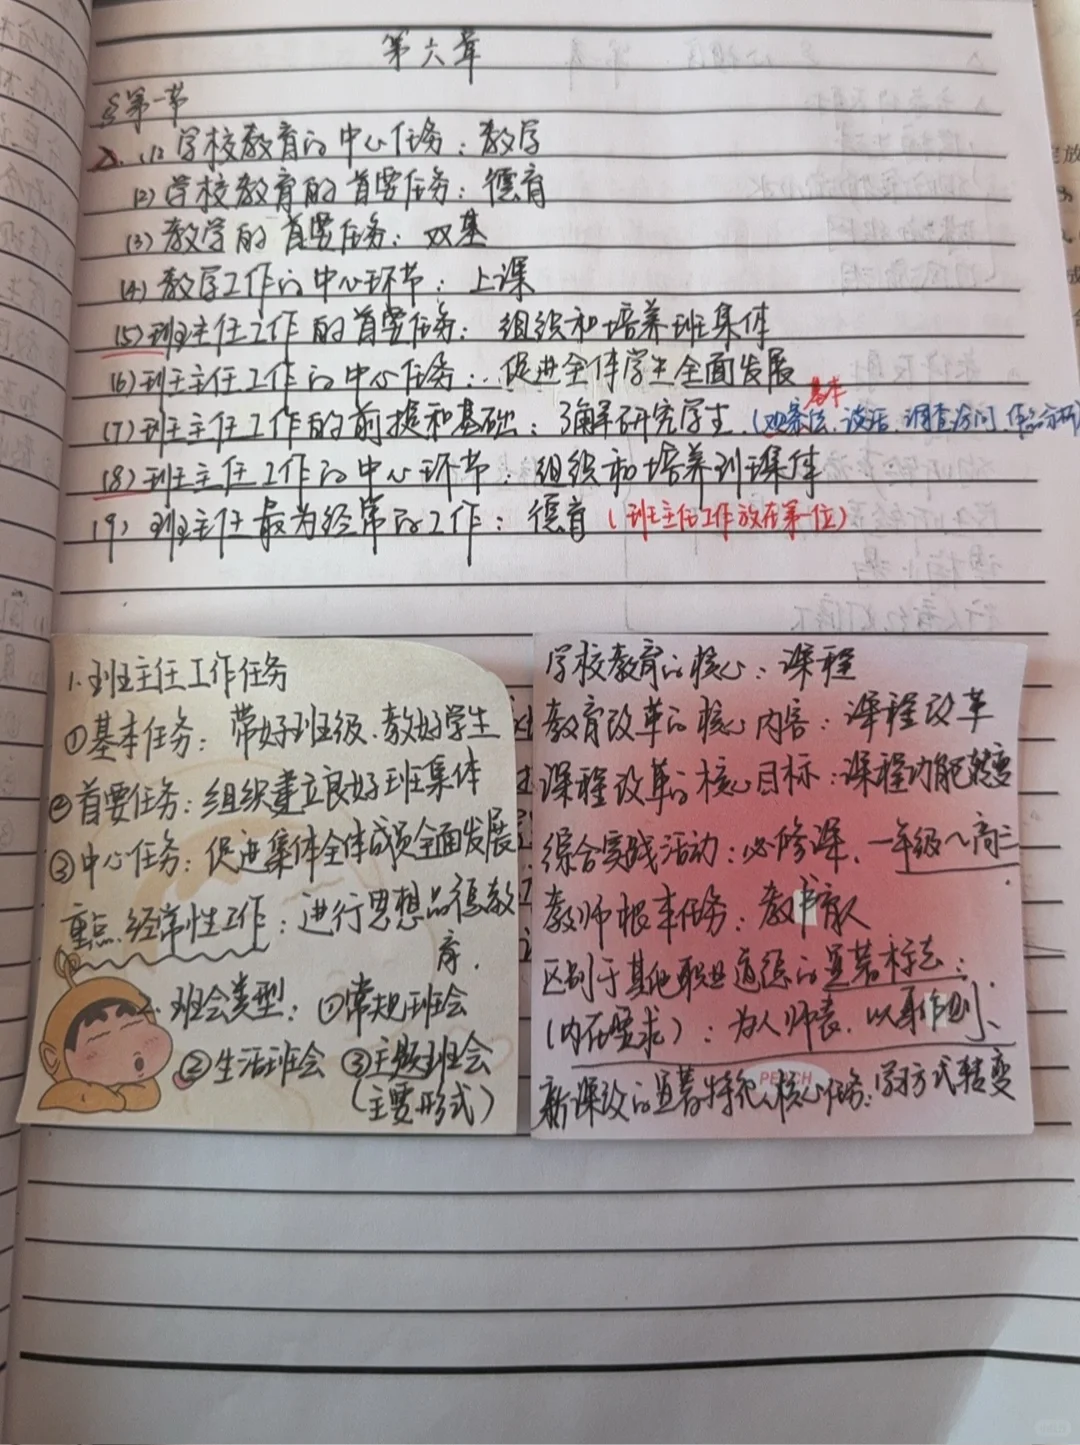 第六章
§第一节
(1) 学校教育的中心任务：教学
(2) 学校教育的首要任务：德育
(3) 教学的首要任务：双基
(4) 教学工作的中心环节：上课
(5) 班主任工作的首要任务：组织和培养班集体
(6) 班主任工作的中心任务：促进全体学生全面发展
基本
(7) 班主任工作的前提和基础：了解研究学生（观察法、谈话、调查访问、
(8) 班主任工作的中心环节：组织和培养班集体
(9) 班主任最为经常的工作：德育（班主任工作放在第一位）
1.班主任工作任务
①基本任务：带好班级、教好学生
②首要任务：组织建立良好班集体
③中心任务：促进集体全体成员全面发展
重点、经常性工作：进行思想品德教
育.
2.班会类型：①常规班会
②生活班会 ③主题班会
(主要形式)
学校教育的核心：课程
教育改革的核心内容：课程改革
课程改革的核心目标：课程功能转变
综合实践活动：必修课、一年级～高三.
教师根本任务：教书育人
区别于其他职业道德的显著标志：
(内在要求)：为人师表、以身作则、
新课改的显著特征、核心任务：学习方式转变
PEACH